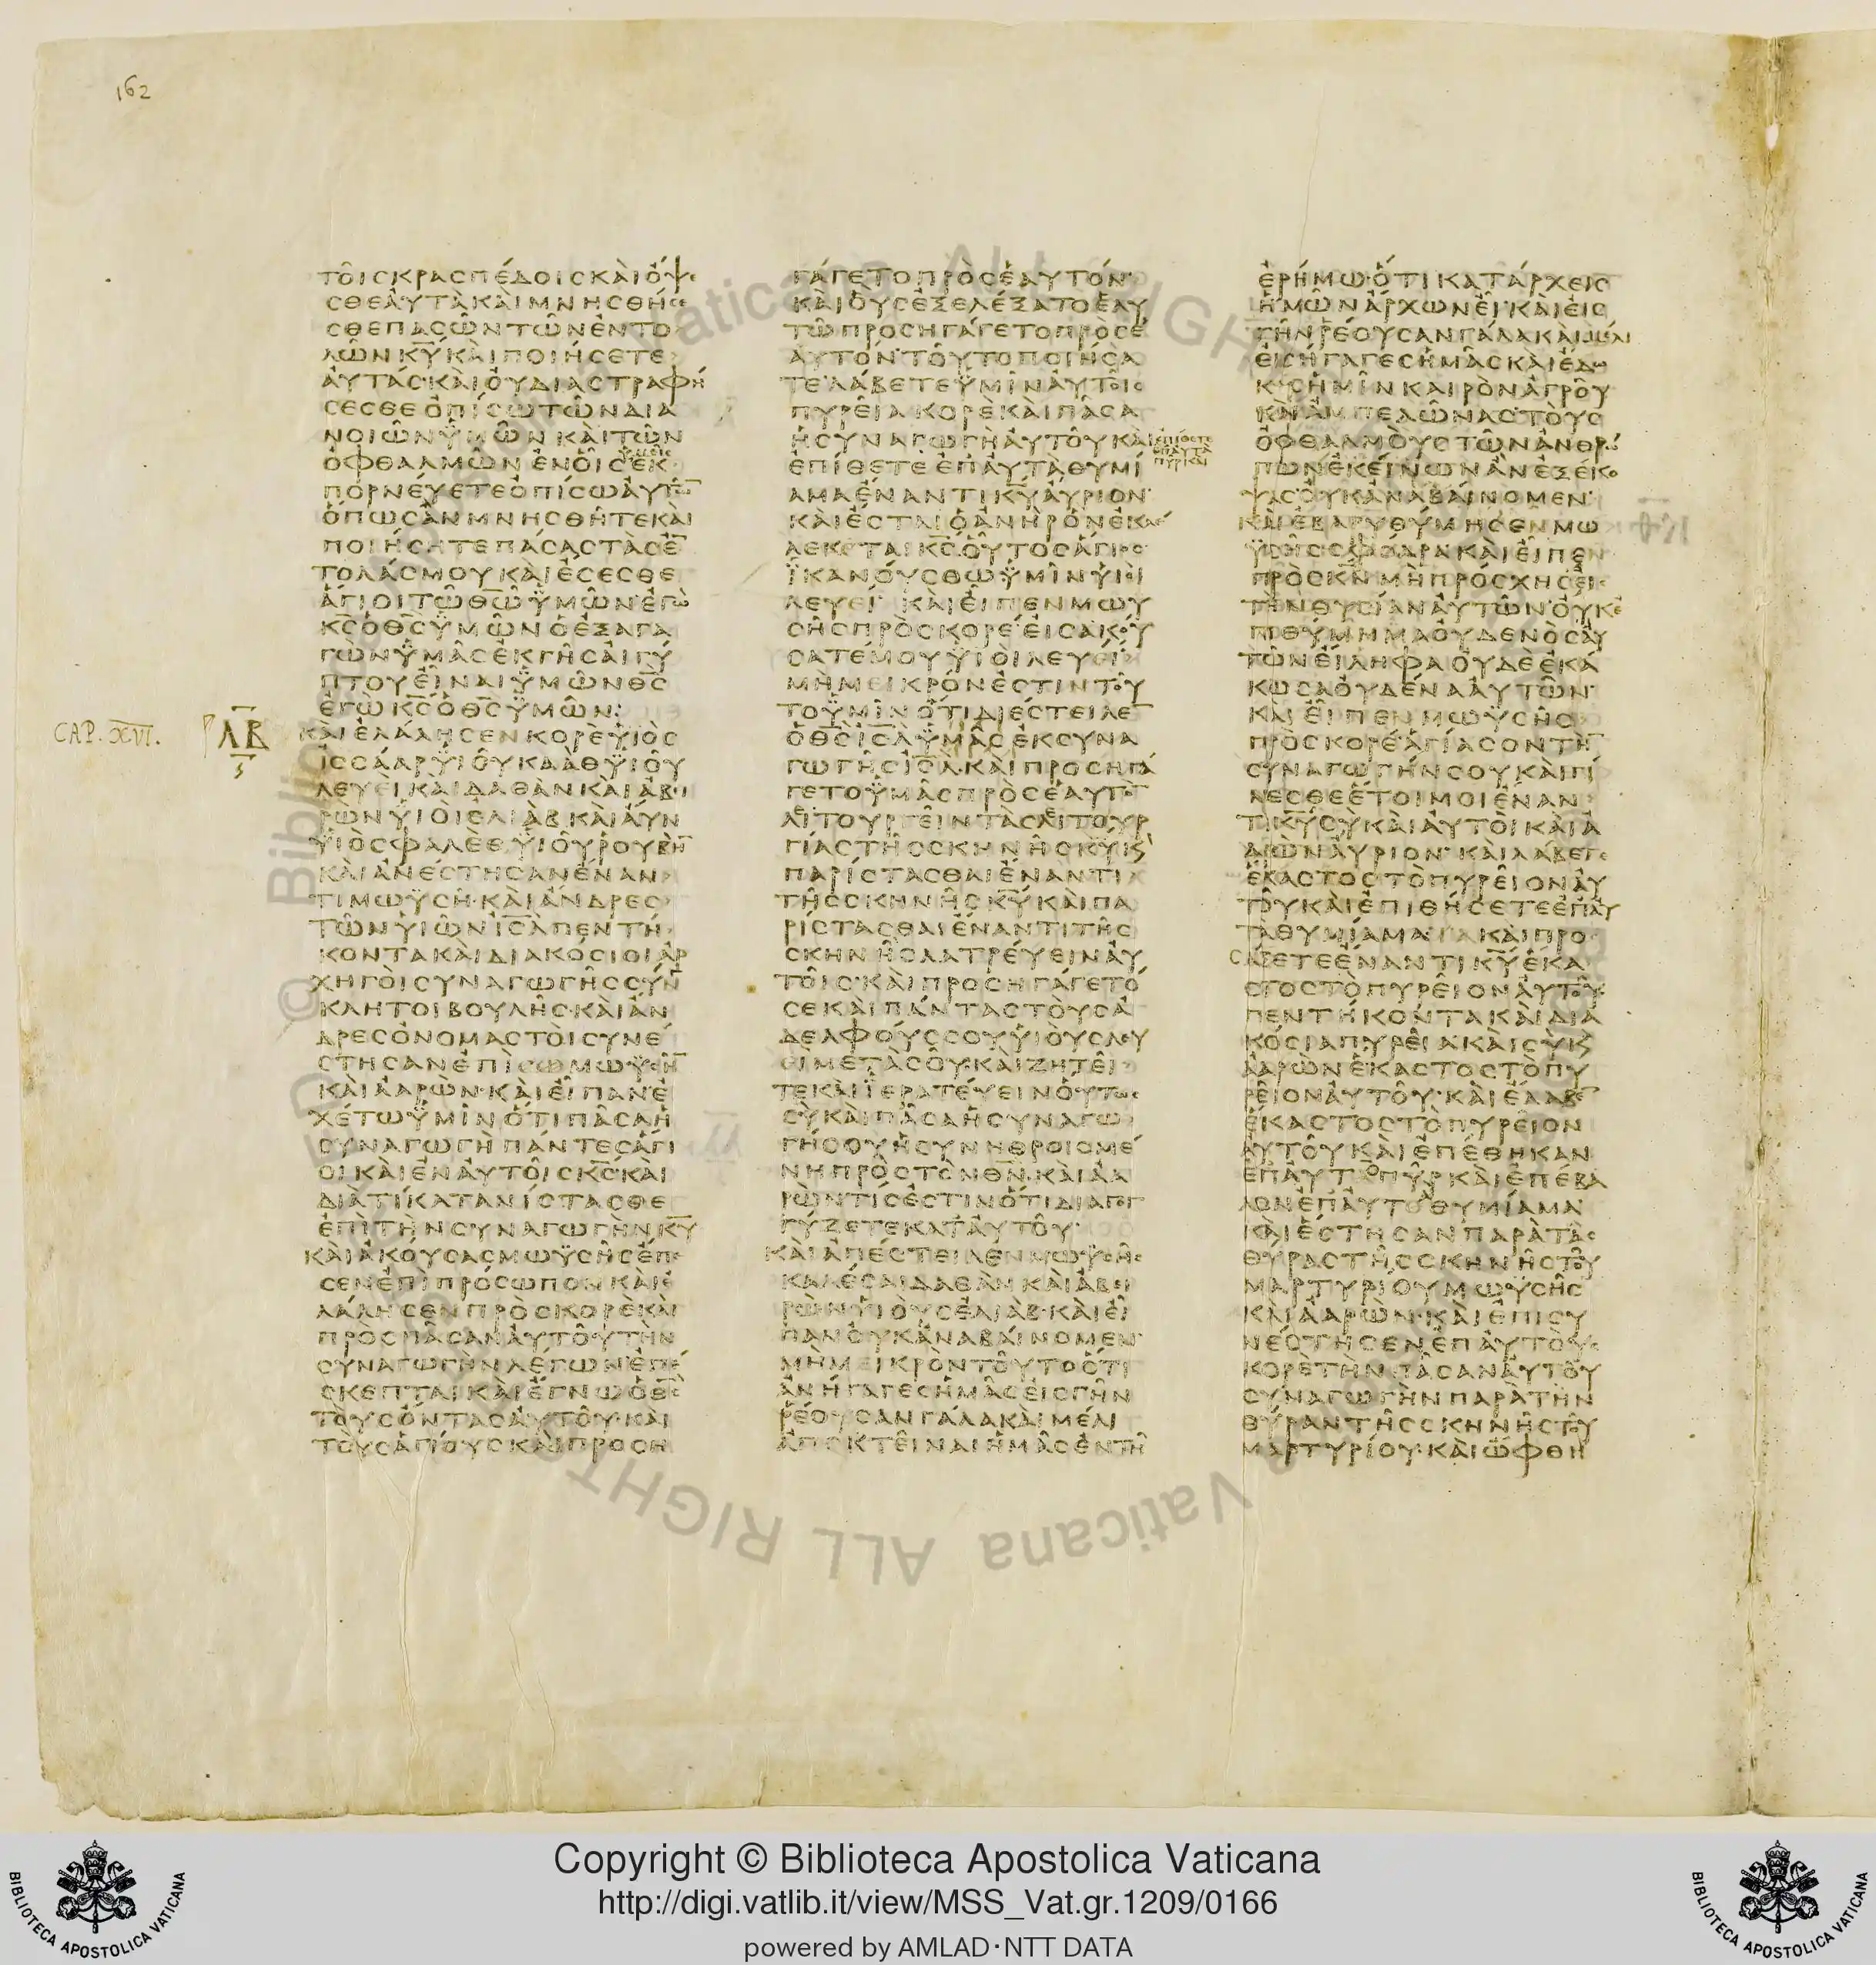 162
ΤΟΙΣ ΚΡΑΣΠΕΔΟΙΣ ΚΑΙ ΟΨΕ
ΣΘΕ ΑΥΤΑ ΚΑΙ ΜΝΗΣΘΗΣΕ
ΣΘΕ ΠΑΣΩΝ ΤΩΝ ΕΝΤΟ
ΛΩΝ Κ̅Υ̅ ΚΑΙ ΠΟΙΗΣΕΤΕ
ΑΥΤΑΣ· ΚΑΙ ΟΥ ΔΙΑΣΤΡΑΦΗ
ΣΕΣΘΕ ΟΠΙΣΩ ΤΩΝ ΔΙΑ
ΝΟΙΩΝ ΥΜΩΝ ΚΑΙ ΤΩΝ
ΟΦΘΑΛΜΩΝ ΕΝ ΟΙΣ ΕΚ
ΠΟΡΝΕΥΕΤΕ ΟΠΙΣΩ ΑΥΤΩ̅
ΟΠΩΣ ΑΝ ΜΝΗΣΘΗΤΕ ΚΑΙ
ΠΟΙΗΣΗΤΕ ΠΑΣΑΣ ΤΑΣ Ε̅
ΤΟΛΑΣ ΜΟΥ ΚΑΙ ΕΣΕΣΘΕ
ΑΓΙΟΙ ΤΩ Θ̅Ω̅ ΥΜΩΝ· ΕΓΩ
Κ̅Σ̅ Ο Θ̅Σ̅ ΥΜΩΝ Ο ΕΞΑΓΑ
ΓΩΝ ΥΜΑΣ ΕΚ ΓΗΣ ΑΙΓΥ
ΠΤΟΥ ΕΙΝΑΙ ΥΜΩΝ Θ̅Σ̅
ΕΓΩ Κ̅Σ̅ Ο Θ̅Σ̅ ΥΜΩΝ:
CAP. XVI. ΛΒ
ΚΑΙ ΕΛΑΛΗΣΕΝ ΚΟΡΕ ΥΙΟΣ
ΙΣΣΑΑΡ ΥΙΟΥ ΚΑΑΘ ΥΙΟΥ
ΛΕΥΕΙ ΚΑΙ ΔΑΘΑΝ ΚΑΙ ΑΒΙ
ΡΩΝ ΥΙΟΙ ΕΛΙΑΒ ΚΑΙ ΑΥΝ
ΥΙΟΣ ΦΑΛΕΘ ΥΙΟΥ ΡΟΥΒΗ̅
ΚΑΙ ΑΝΕΣΤΗΣΑΝ ΕΝΑΝ
ΤΙ ΜΩΥΣΗ· ΚΑΙ ΑΝΔΡΕΣ
ΤΩΝ ΥΙΩΝ Ι̅Σ̅Λ̅ ΠΕΝΤΗ
ΚΟΝΤΑ ΚΑΙ ΔΙΑΚΟΣΙΟΙ ΑΡ
ΧΗΓΟΙ ΣΥΝΑΓΩΓΗΣ ΣΥΝ
ΚΛΗΤΟΙ ΒΟΥΛΗΣ· ΚΑΙ ΑΝ
ΔΡΕΣ ΟΝΟΜΑΣΤΟΙ ΣΥΝΕ
ΣΤΗΣΑΝ ΕΠΙ ΜΩΥΣΗ̅
ΚΑΙ ΑΑΡΩΝ· ΚΑΙ ΕΙΠΑΝ Ε
ΧΕΤΩ ΥΜΙΝ ΟΤΙ ΠΑΣΑ Η
ΣΥΝΑΓΩΓΗ ΠΑΝΤΕΣ ΑΓΙ
ΟΙ ΚΑΙ ΕΝ ΑΥΤΟΙΣ Κ̅Σ̅· ΚΑΙ
ΔΙΑ ΤΙ ΚΑΤΑΝΙΣΤΑΣΘΕ
ΕΠΙ ΤΗΝ ΣΥΝΑΓΩΓΗΝ Κ̅Υ̅
ΚΑΙ ΑΚΟΥΣΑΣ ΜΩΥΣΗΣ ΕΠΕ
ΣΕΝ ΕΠΙ ΠΡΟΣΩΠΟΝ ΚΑΙ Ε
ΛΑΛΗΣΕΝ ΠΡΟΣ ΚΟΡΕ ΚΑΙ
ΠΡΟΣ ΠΑΣΑΝ ΑΥΤΟΥ ΤΗΝ
ΣΥΝΑΓΩΓΗΝ ΛΕΓΩΝ· ΕΠΕ
ΣΚΕΠΤΑΙ ΚΑΙ ΕΓΝΩ Ο Θ̅Σ̅
ΤΟΥΣ ΟΝΤΑΣ ΑΥΤΟΥ· ΚΑΙ
ΤΟΥΣ ΑΓΙΟΥΣ ΚΑΙ ΠΡΟΣΗ
ΓΑΓΕΤΟ ΠΡΟΣ ΕΑΥΤΟΝ·
ΚΑΙ ΟΥΣ ΕΞΕΛΕΞΑΤΟ ΕΑΥ
ΤΩ ΠΡΟΣΗΓΑΓΕΤΟ ΠΡΟΣ Ε
ΑΥΤΟΝ· ΤΟΥΤΟ ΠΟΙΗΣΑ
ΤΕ· ΛΑΒΕΤΕ ΥΜΙΝ ΑΥΤΟΙΣ
ΠΥΡΕΙΑ ΚΟΡΕ ΚΑΙ ΠΑΣΑ
Η ΣΥΝΑΓΩΓΗ ΑΥΤΟΥ ΚΑΙ
ΕΠΙΘΕΤΕ ΕΠ ΑΥΤΑ ΠΥΡ ΚΑΙ
ΕΠΙΘΕΤΕ ΕΠ ΑΥΤΑ ΘΥΜΙ
ΑΜΑ ΕΝΑΝΤΙ Κ̅Υ̅ ΑΥΡΙΟΝ·
ΚΑΙ ΕΣΤΑΙ Ο ΑΝΗΡ ΟΝ ΕΚ
ΛΕΚΤΑΙ Κ̅Σ̅ ΟΥΤΟΣ ΑΓΙΟΣ
ΙΚΑΝΟΥΣΘΩ ΥΜΙΝ ΥΙΟΙ
ΛΕΥΕΙ· ΚΑΙ ΕΙΠΕΝ ΜΩΥ
ΣΗΣ ΠΡΟΣ ΚΟΡΕ· ΕΙΣΑΚΟΥ
ΣΑΤΕ ΜΟΥ ΥΙΟΙ ΛΕΥΕΙ
ΜΗ ΜΕΙΚΡΟΝ ΕΣΤΙΝ ΤΟΥ
ΤΟ ΥΜΙΝ ΟΤΙ ΔΙΕΣΤΕΙΛΕ̅
Ο Θ̅Σ̅ Ι̅Σ̅Λ̅ ΥΜΑΣ ΕΚ ΣΥΝΑ
ΓΩΓΗΣ Ι̅Σ̅Λ̅· ΚΑΙ ΠΡΟΣΗΓΑ
ΓΕΤΟ ΥΜΑΣ ΠΡΟΣ ΕΑΥΤΟ̅
ΛΙΤΟΥΡΓΕΙΝ ΤΑΣ ΛΙΤΟΥΡ
ΓΙΑΣ ΤΗΣ ΣΚΗΝΗΣ Κ̅Υ̅ Κ
ΠΑΡΙΣΤΑΣΘΑΙ ΕΝΑΝΤΙ
ΤΗΣ ΣΚΗΝΗΣ Κ̅Υ̅ ΚΑΙ ΠΑ
ΡΙΣΤΑΣΘΑΙ ΕΝΑΝΤΙ ΤΗΣ
ΣΚΗΝΗΣ ΛΑΤΡΕΥΕΙΝ ΑΥ
ΤΟΙΣ· ΚΑΙ ΠΡΟΣΗΓΑΓΕΤΟ
ΣΕ ΚΑΙ ΠΑΝΤΑΣ ΤΟΥΣ Α
ΔΕΛΦΟΥΣ ΣΟΥ ΥΙΟΥΣ ΛΕΥ
ΕΙ ΜΕΤΑ ΣΟΥ· ΚΑΙ ΖΗΤΕΙ
ΤΕ ΚΑΙ ΙΕΡΑΤΕΥΕΙΝ ΟΥΤΩΣ
ΣΥ ΚΑΙ ΠΑΣΑ Η ΣΥΝΑΓΩ
ΓΗ ΣΟΥ Η ΣΥΝΗΘΡΟΙΣΜΕ
ΝΗ ΠΡΟΣ ΤΟΝ Θ̅Ν̅· ΚΑΙ ΑΑ
ΡΩΝ ΤΙΣ ΕΣΤΙΝ ΟΤΙ ΔΙΑΓΟΓ
ΓΥΖΕΤΕ ΚΑΤ ΑΥΤΟΥ·
ΚΑΙ ΑΠΕΣΤΕΙΛΕΝ ΜΩΥΣΗΣ
ΚΑΛΕΣΑΙ ΔΑΘΑΝ ΚΑΙ ΑΒΙ
ΡΩΝ ΥΙΟΥΣ ΕΛΙΑΒ· ΚΑΙ ΕΙ
ΠΑΝ ΟΥΚ ΑΝΑΒΑΙΝΟΜΕΝ·
ΜΗ ΜΕΙΚΡΟΝ ΤΟΥΤΟ ΟΤΙ
ΑΝΗΓΑΓΕΣ ΗΜΑΣ ΕΙΣ ΓΗΝ
ΡΕΟΥΣΑΝ ΓΑΛΑ ΚΑΙ ΜΕΛΙ
ΑΠΟΚΤΕΙΝΑΙ ΗΜΑΣ ΕΝ ΤΗ
ΕΡΗΜΩ· ΟΤΙ ΚΑΤΑΡΧΕΙΣ
ΗΜΩΝ ΑΡΧΩΝ ΕΙ· ΚΑΙ ΕΙΣ
ΓΗΝ ΡΕΟΥΣΑΝ ΓΑΛΑ ΚΑΙ ΜΕΛΙ
ΕΙΣΗΓΑΓΕΣ ΗΜΑΣ ΚΑΙ ΕΔΩ
ΚΑΣ ΗΜΙΝ ΚΛΗΡΟΝ ΑΓΡΟΥ
ΚΑΙ ΑΜΠΕΛΩΝΑΣ· ΤΟΥΣ
ΟΦΘΑΛΜΟΥΣ ΤΩΝ ΑΝΘΡΩ
ΠΩΝ ΕΚΕΙΝΩΝ ΑΝ ΕΞΕΚΟ
ΨΑΣ· ΟΥΚ ΑΝΑΒΑΙΝΟΜΕΝ·
ΚΑΙ ΕΒΑΡΥΘΥΜΗΣΕΝ ΜΩ
ΥΣΗΣ ΣΦΟΔΡΑ ΚΑΙ ΕΙΠΕΝ
ΠΡΟΣ Κ̅Ν̅ ΜΗ ΠΡΟΣΧΗΣ ΕΙΣ
ΤΗΝ ΘΥΣΙΑΝ ΑΥΤΩΝ· ΟΥΚ Ε
ΠΙΘΥΜΗΜΑ ΟΥΔΕΝΟΣ ΑΥ
ΤΩΝ ΕΙΛΗΦΑ ΟΥΔΕ ΕΚΑ
ΚΩΣΑ ΟΥΔΕΝΑ ΑΥΤΩΝ·
ΚΑΙ ΕΙΠΕΝ ΜΩΥΣΗΣ
ΠΡΟΣ ΚΟΡΕ· ΑΓΙΑΣΟΝ ΤΗ̅
ΣΥΝΑΓΩΓΗΝ ΣΟΥ ΚΑΙ ΓΙ
ΝΕΣΘΕ ΕΤΟΙΜΟΙ ΕΝΑΝ
ΤΙ Κ̅Υ̅ ΣΥ ΚΑΙ ΑΥΤΟΙ ΚΑΙ Α
ΑΡΩΝ ΑΥΡΙΟΝ· ΚΑΙ ΛΑΒΕΤΕ
ΕΚΑΣΤΟΣ ΤΟ ΠΥΡΕΙΟΝ ΑΥ
ΤΟΥ ΚΑΙ ΕΠΙΘΗΣΕΤΕ ΕΠ ΑΥ
ΤΑ ΘΥΜΙΑΜΑ ΚΑΙ ΠΡΟ
ΣΑΞΕΤΕ ΕΝΑΝΤΙ Κ̅Υ̅ ΕΚΑ
ΣΤΟΣ ΤΟ ΠΥΡΕΙΟΝ ΑΥΤΟΥ·
ΠΕΝΤΗΚΟΝΤΑ ΚΑΙ ΔΙΑ
ΚΟΣΙΑ ΠΥΡΕΙΑ ΚΑΙ ΣΥ Κ
ΑΑΡΩΝ ΕΚΑΣΤΟΣ ΤΟ ΠΥ
ΡΕΙΟΝ ΑΥΤΟΥ· ΚΑΙ ΕΛΑΒΕ̅
ΕΚΑΣΤΟΣ ΤΟ ΠΥΡΕΙΟΝ
ΑΥΤΟΥ ΚΑΙ ΕΠΕΘΗΚΑΝ
ΕΠ ΑΥΤΟ ΠΥΡ ΚΑΙ ΕΠΕΒΑ
ΛΟΝ ΕΠ ΑΥΤΟ ΘΥΜΙΑΜΑ·
ΚΑΙ ΕΣΤΗΣΑΝ ΠΑΡΑ ΤΑΣ
ΘΥΡΑΣ ΤΗΣ ΣΚΗΝΗΣ ΤΟΥ
ΜΑΡΤΥΡΙΟΥ ΜΩΥΣΗΣ
ΚΑΙ ΑΑΡΩΝ· ΚΑΙ ΕΠΙΣΥ
ΝΕΣΤΗΣΕΝ ΕΠ ΑΥΤΟΥΣ
ΚΟΡΕ ΤΗΝ ΠΑΣΑΝ ΑΥΤΟΥ
ΣΥΝΑΓΩΓΗΝ ΠΑΡΑ ΤΗΝ
ΘΥΡΑΝ ΤΗΣ ΣΚΗΝΗΣ ΤΟΥ
ΜΑΡΤΥΡΙΟΥ· ΚΑΙ ΩΦΘΗ
Copyright © Biblioteca Apostolica Vaticana
http://digi.vatlib.it/view/MSS_Vat.gr.1209/0166
powered by AMLAD·NTT DATA
BIBLIOTECA APOSTOLICA VATICANA
BIBLIOTECA APOSTOLICA VATICANA